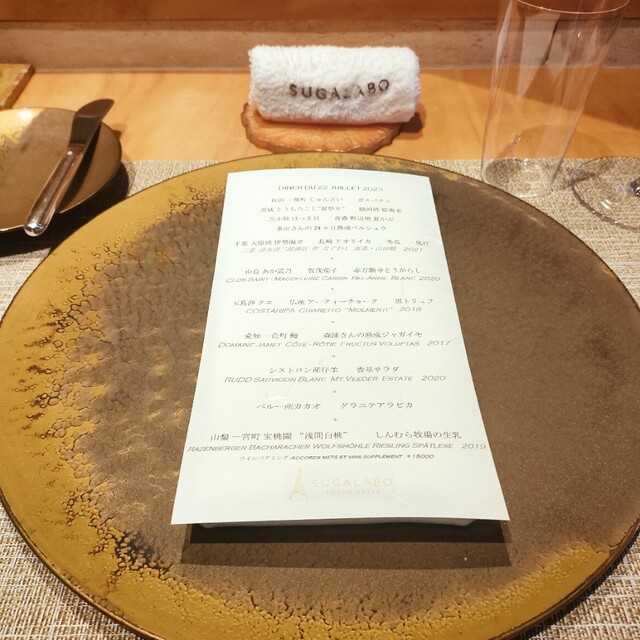 SUGALABO
DINER DU 22 JUILLET 2023
秋田 三種町 じゅんさい ガスパチョ
茨城 とうもろこし"夏祭り" 駿河湾 桜海老
苫小牧 ほっき貝 青森 野辺地 葉かぶ
多田さんの24ヶ月熟成ペルシュウ
千葉 大原港 伊勢海老 長崎 アオリイカ 冬瓜
2021
由良 あか雲丹 賀茂茄子 赤万願寺とうがらし
CLOS SAINT-MAGDELEINE CASSIS BEL-ARME BLANC 2020
玉島沖 クエ 仏産 アーティーチョーク 黒トリュフ
COSTARIPA CHIARETTO "MOLMENTI" 2018
愛知 一色町 鰻 森浦さんの熟成ジャガイモ
DOMAINE JAMET CÔTE-RÔTIE FRUCTUS VOLUPTAS 2017
シストロン産仔羊 香草サラダ
RUDD SAUVIGON BLANC MT VEEDER ESTATE 2020
ペルー産カカオ グラニテアラビカ
山梨 一宮町 宝桃園 "浅間白桃" しんむら牧場の生乳
RAZENBERGER BACHARACHER WOLFSHÖHLE RIESLING SPÄTLESE 2019
ワインペアリング ACCORDS METS ET VINS SUPPLEMENT +15000
SUGALABO